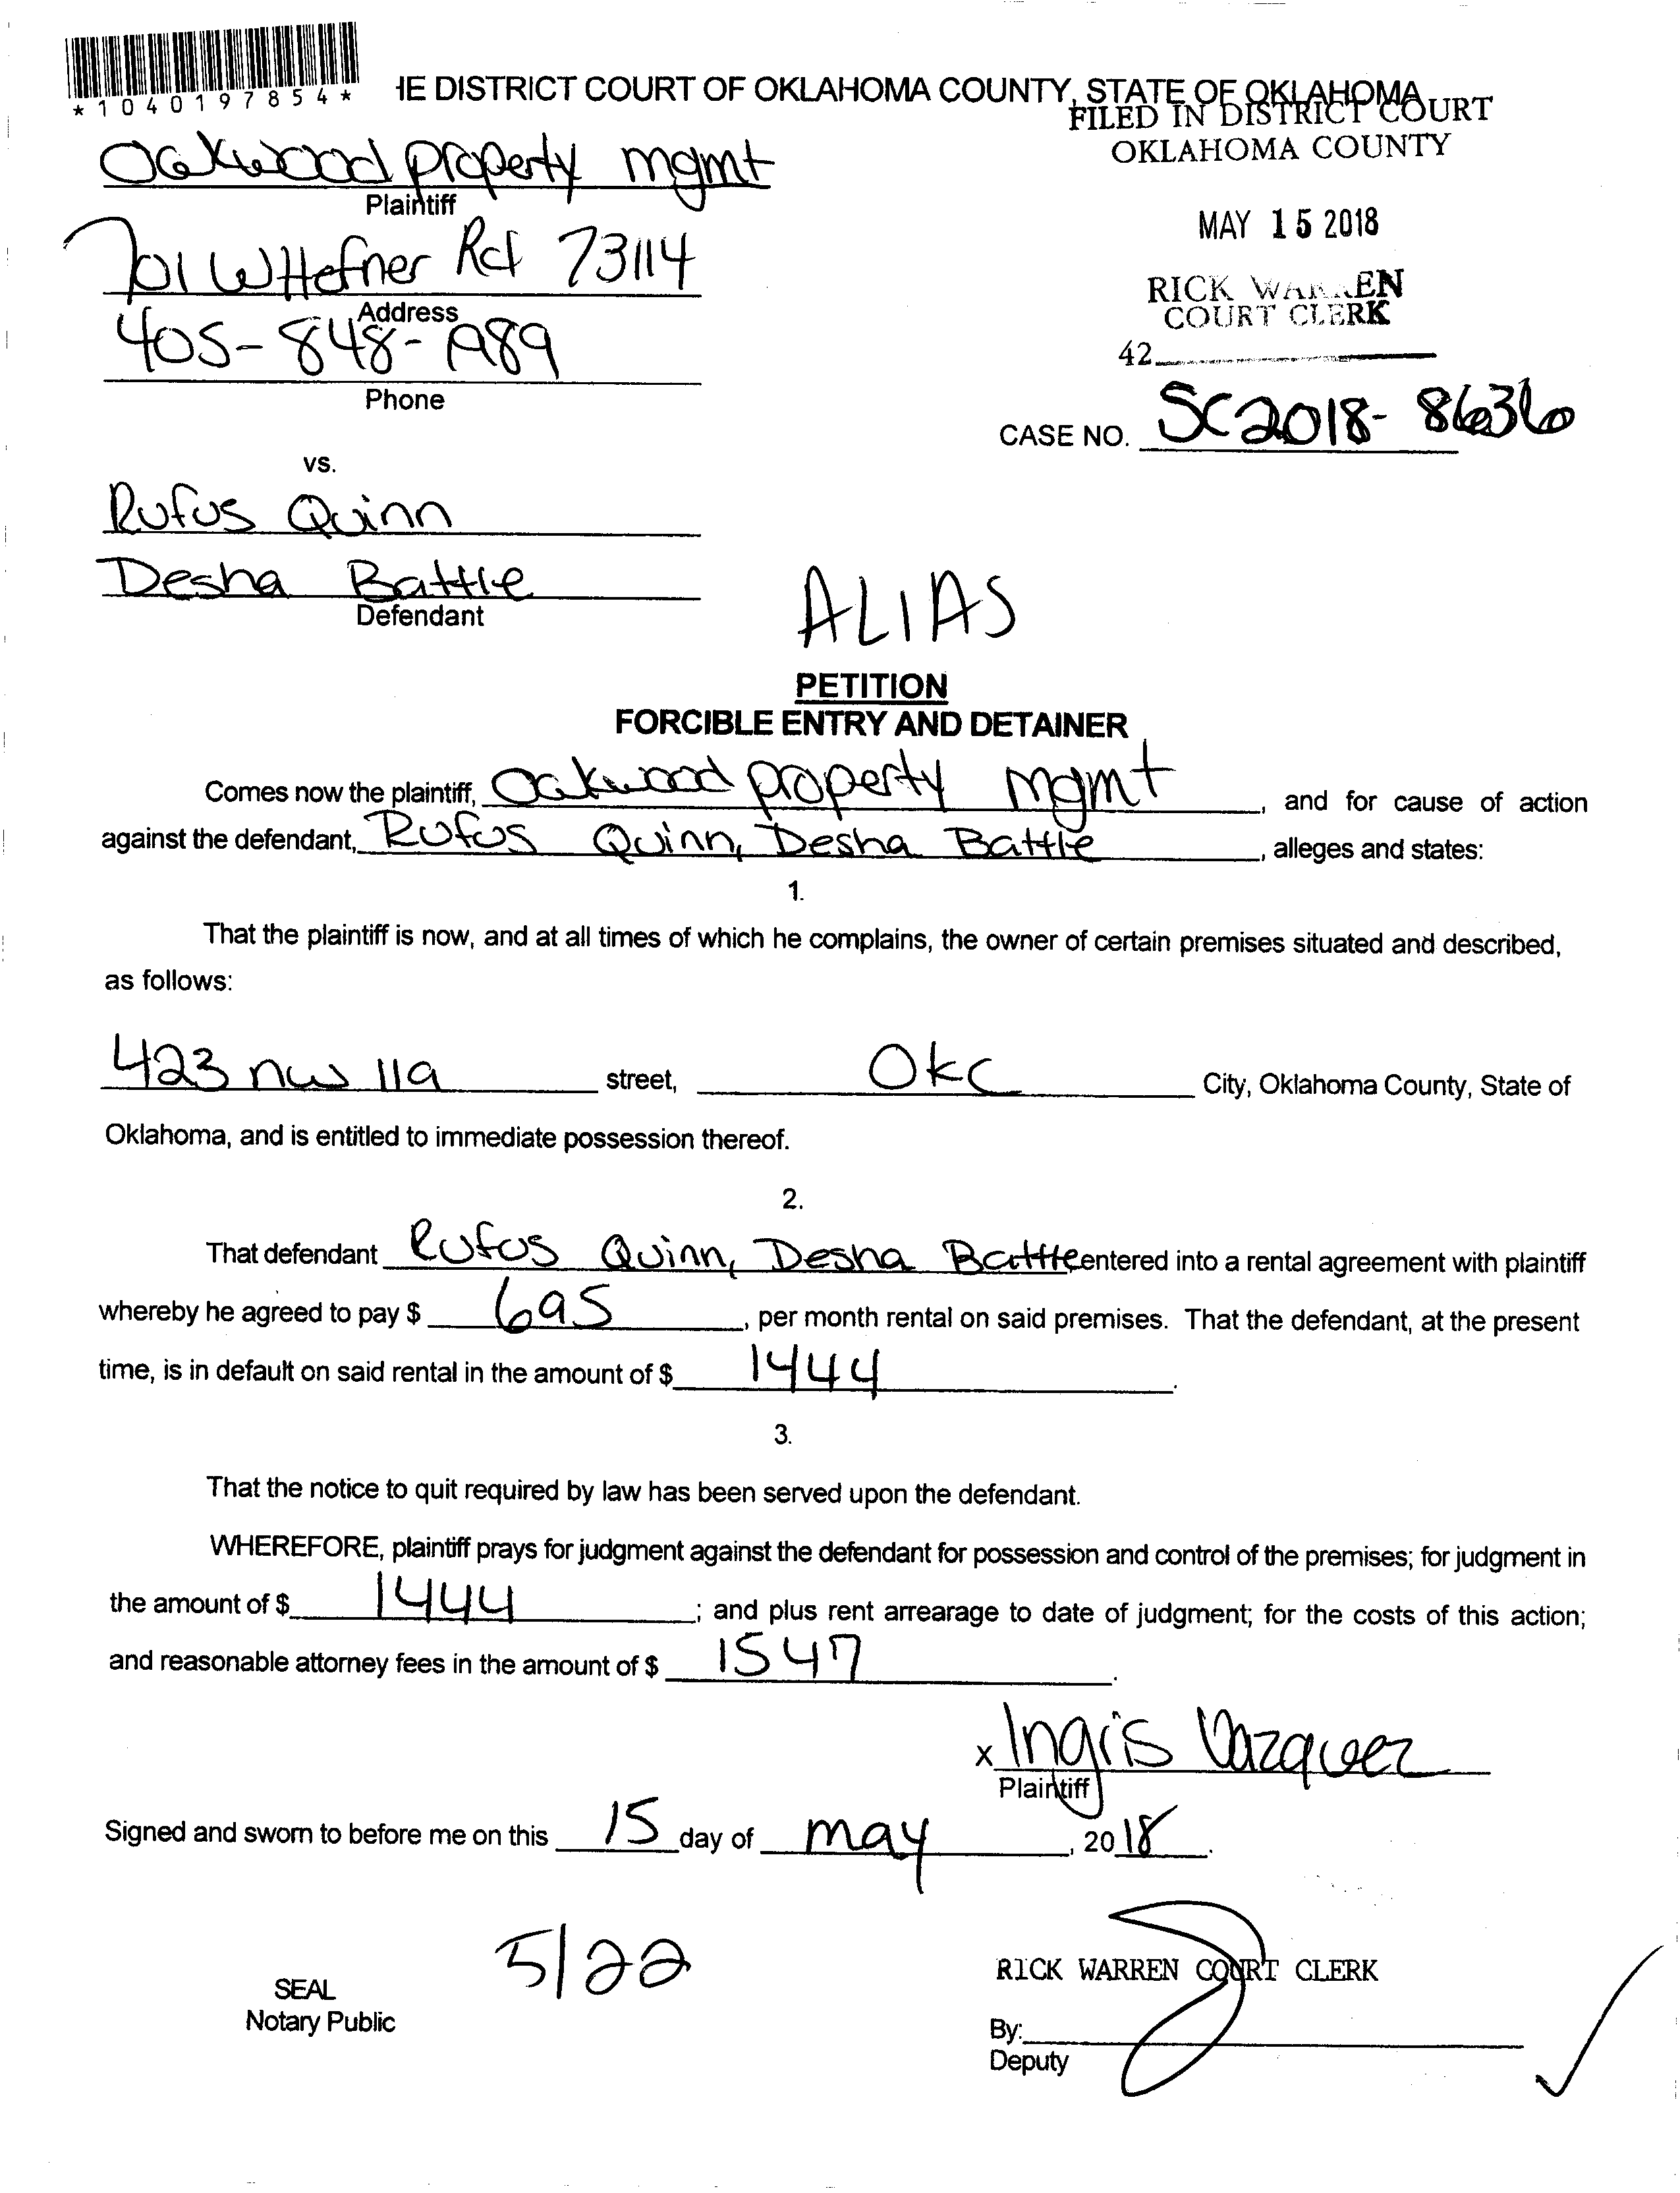 *1040197854*
HE DISTRICT COURT OF OKLAHOMA COUNTY, STATE OF OKLAHOMA
FILED IN DISTRICT COURT
OKLAHOMA COUNTY
Oakwood property mgmt
Plaintiff
MAY 15 2018
701 W Hefner Rd 73114
Address
RICK WARREN
COURT CLERK
405-848-1989
Phone
42
CASE NO. SC2018-8636
vs.
Rufus Quinn
Desha Battle
Defendant
ALIAS
PETITION
FORCIBLE ENTRY AND DETAINER
Comes now the plaintiff, Oakwood property mgmt, and for cause of action
against the defendant, Rufus Quinn, Desha Battle, alleges and states:
1.
That the plaintiff is now, and at all times of which he complains, the owner of certain premises situated and described,
as follows:
423 nw 119 street, OKC City, Oklahoma County, State of
Oklahoma, and is entitled to immediate possession thereof.
2.
That defendant Rufus Quinn, Desha Battle entered into a rental agreement with plaintiff
whereby he agreed to pay $ 695, per month rental on said premises. That the defendant, at the present
time, is in default on said rental in the amount of $ 1444.
3.
That the notice to quit required by law has been served upon the defendant.
WHEREFORE, plaintiff prays for judgment against the defendant for possession and control of the premises; for judgment in
the amount of $ 1444; and plus rent arrearage to date of judgment; for the costs of this action;
and reasonable attorney fees in the amount of $ 1547.
x Ingris Vazquez
Plaintiff
Signed and sworn to before me on this 15 day of may, 2018.
5/22
SEAL
Notary Public
RICK WARREN COURT CLERK
By:
Deputy